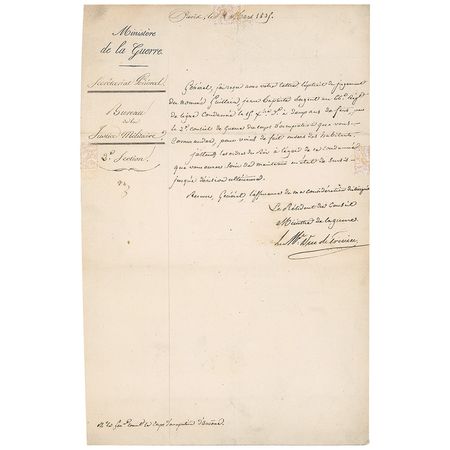 Paris, le Mars 1835.
Ministère
de la Guerre.
Secrétariat Général.
Bureau
de la
Justice Militaire
2e Section.
Général, j'ai reçu avec votre lettre l'extrait de jugement
du nommé Jean Baptiste Sergent au Régt
de ligne condamné le 15 à deux ans de fers, par
le 2e conseil de Guerre du corps d'occupation que vous
Commandez, pour vente de effets
J'attends les ordres du Roi à l'égard de ce condamné
que vous aurez soin de maintenir en état de
jusqu'à décision ultérieure.
Recevez, Général, l'assurance de ma considération distinguée
Le Président du Conseil
Ministre de la guerre
Le Mal Duc de Trévise
Mr le Gén. Commt le corps d'occupation d'Ancône.